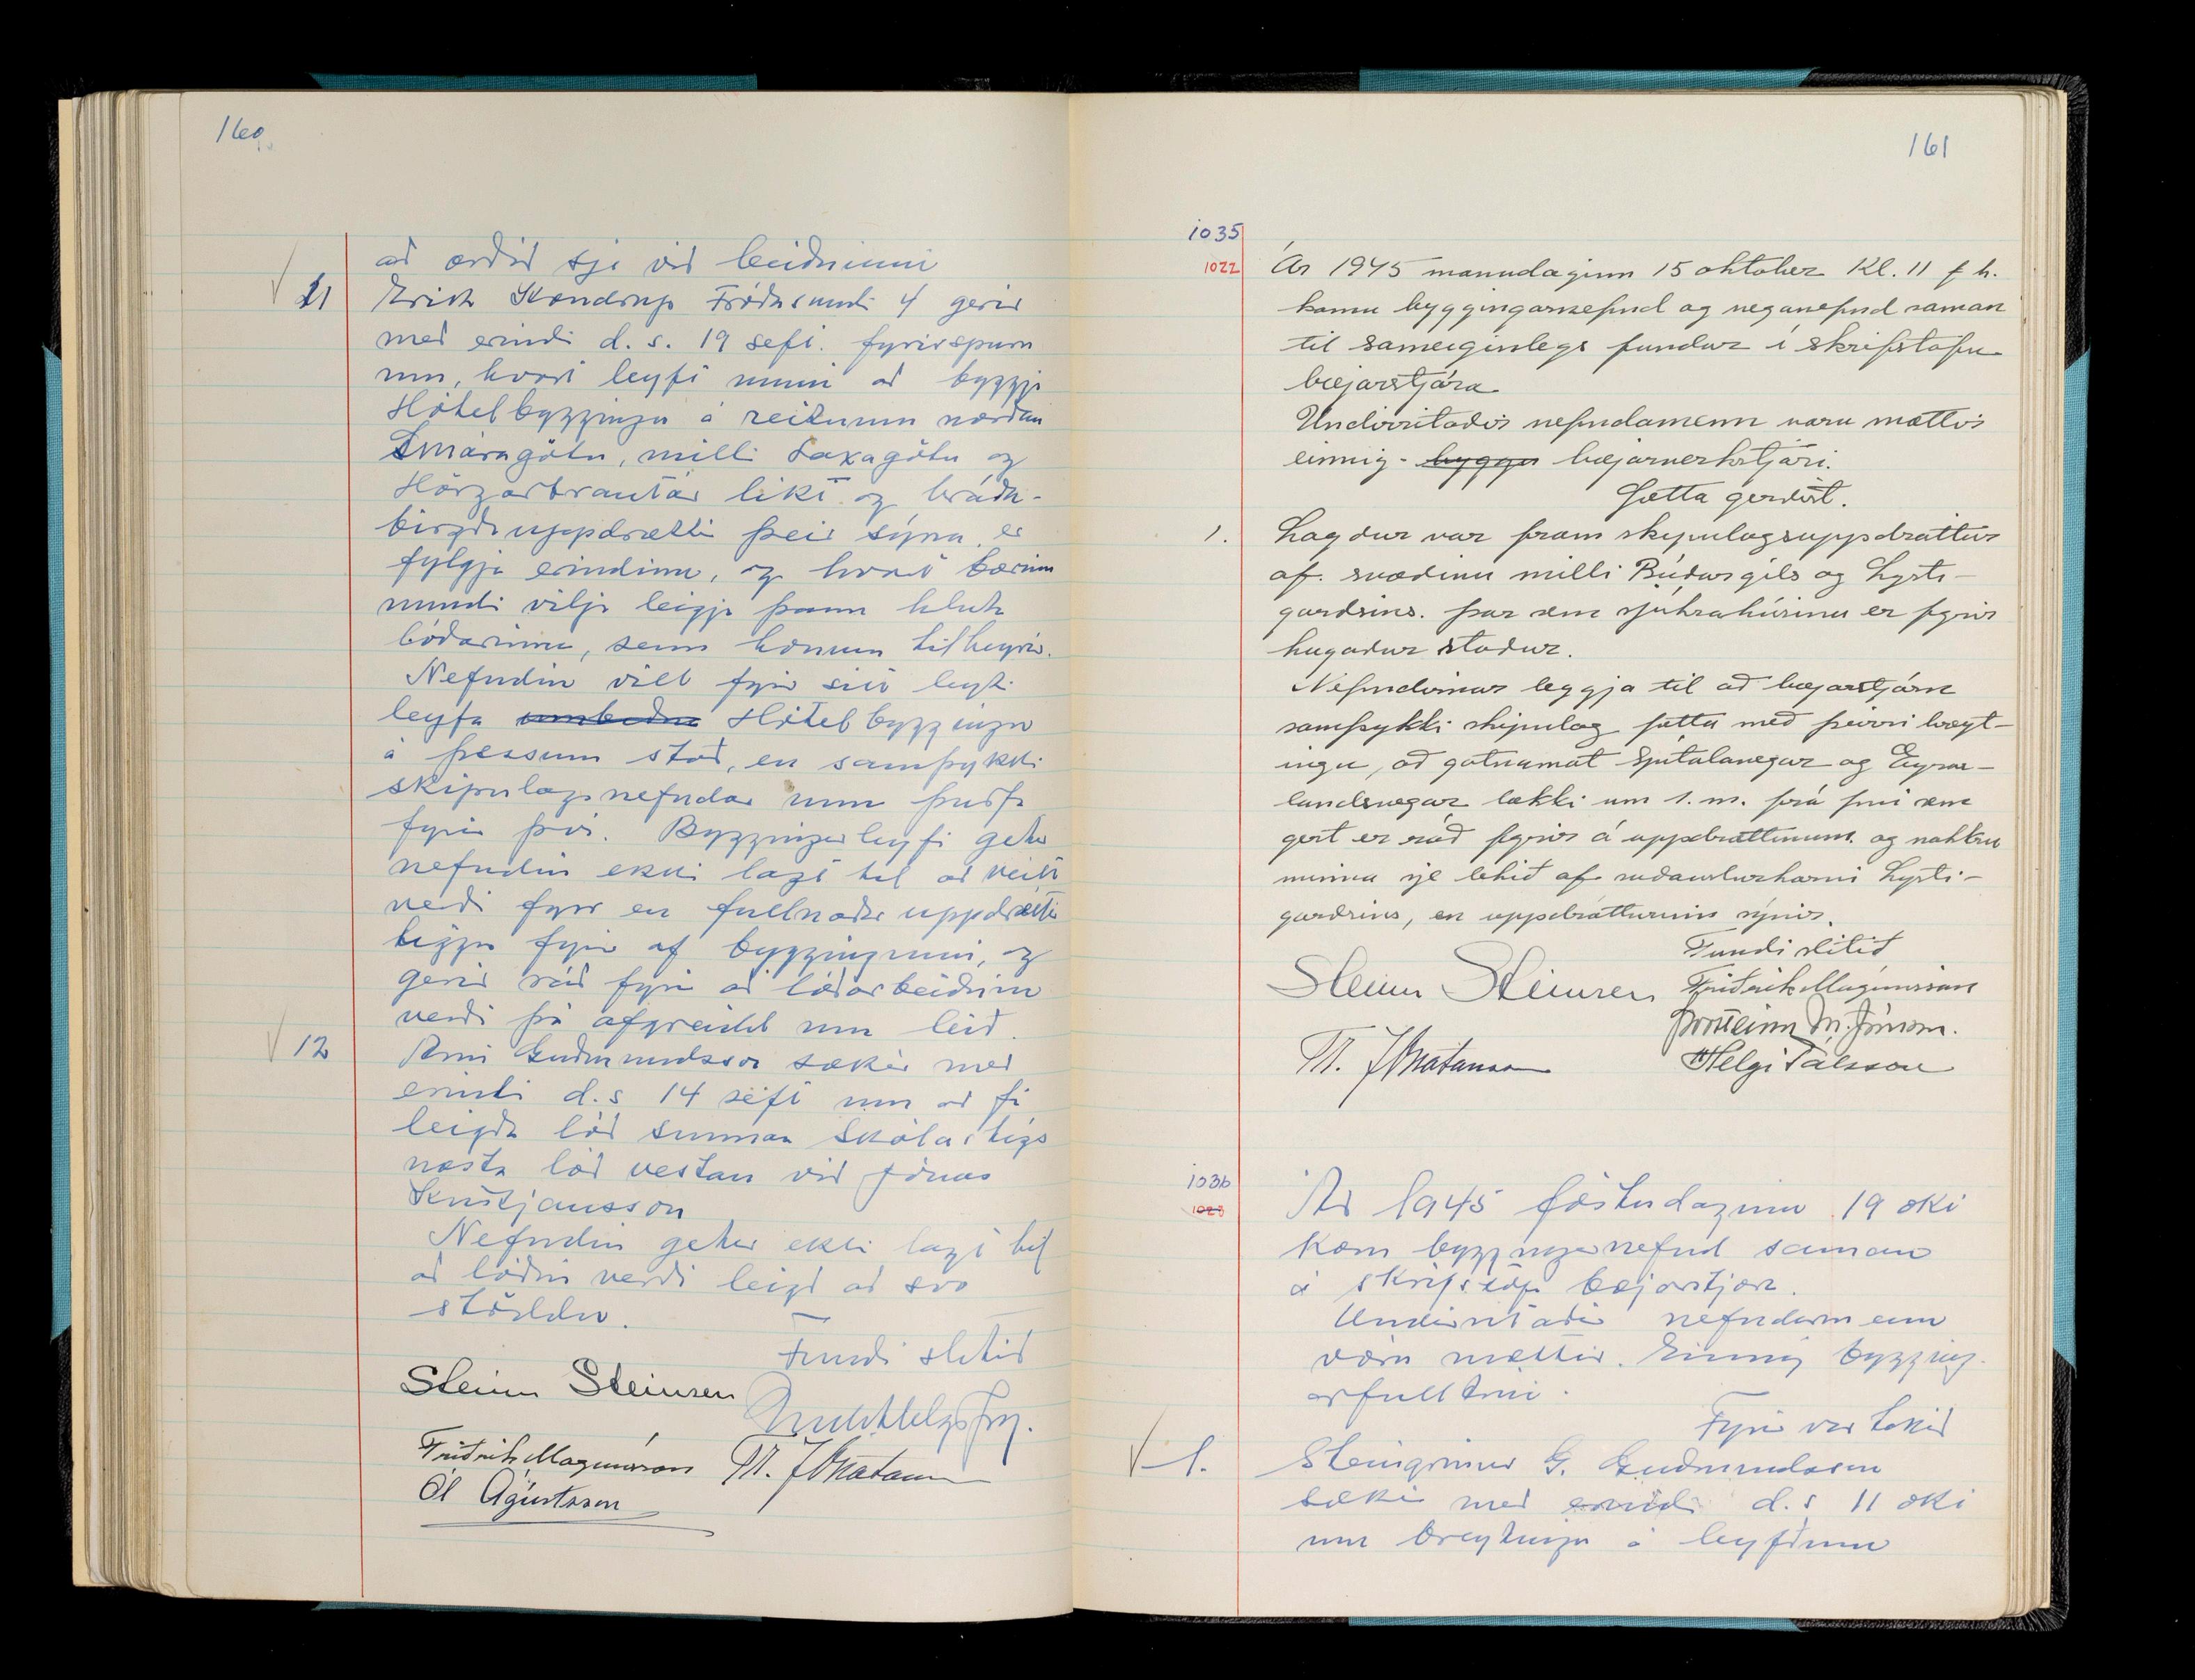 160
að orðið sje við beiðninni
11 Erich Kondrup Fróðasundi 4 gerir
með erindi d.s. 19 sept. fyrirspurn
um, hvort leyfi muni að byggja
Hótelbyggingu á reitunum norðan
Smáragötu, milli Laxagötu og
Hörgárbrautar líkt og bráða-
birgðauppdrættir þeir sýna er
fylgja erindinu, og hvort bærinn
mundi vilja leigja þann hluta
lóðarinnar, sem honum tilheyrir.
Nefndin vill fyrir sitt leyti
leyfa umbeðna Hótelbyggingu
á þessum stað, en samþykki
skipulagsnefndar mun þurfa
fyrir því. Byggingarleyfi getur
nefndin ekki lagt til að veitt
verði fyrr en fullnaðar uppdrættir
liggja fyrir af byggingunni, og
gerir ráð fyrir að lóðarbeiðnin
verði þá afgreidd um leið.
12 Árni Guðmundsson sækir með
erindi d.s 14 sept um að fá
leigða lóð sunnan Skólastígs
næsta lóð vestan við Jónas
Kristjánsson
Nefndin getur ekki lagt til
að lóðin verði leigð að svo
stöddu.
Fundi slitið
Steinn Steinsen
Friðrik Magnússon
Ól Ágústsson
161
1035
1022 Ár 1945 mánudaginn 15 oktober Kl. 11 f h.
komu byggingarnefnd og veganefnd saman
til sameiginlegs fundar í skrifstofu
bæjarstjóra
Undirritaðir nefndamenn voru mættir
einnig - bygga bæjarverkstjóri.
Þetta gerðist.
1. Lagður var fram skipulagsuppdráttur
af svæðinu milli Búðargils og Lysti-
garðsins. þar sem sjúkrahúsinu er fyrir
hugaður staður.
Nefndirnar leggja til að bæjarstjórn
samþykki skipulag þetta með þeirri breyt-
ingu, að gatnamót Spítalavegar og Eyrar-
landsvegar lækki um 1. m. frá því sem
gert er ráð fyrir á uppdrættinum. og nokkru
minna sje tekið af suðausturhorni Lysti-
garðsins, en uppdrátturinn sýnir.
Fundi slitið
Steinn Steinsen Friðrik Magnússon
Þorsteinn M. Jónsson.
Helgi Pálsson
1036
1023 Ár 1945 föstudaginn 19 okt
kom byggingarnefnd saman
á skrifstofu bæjarstjóra.
Undirritaðir nefndarmenn
voru mættir. Einnig bygging-
arfulltrúi.
Fyrir var tekið
1. Steingrímur G. Guðmundsson
sækir með erindi d.s 11 okt
um breytingu á leyfðum